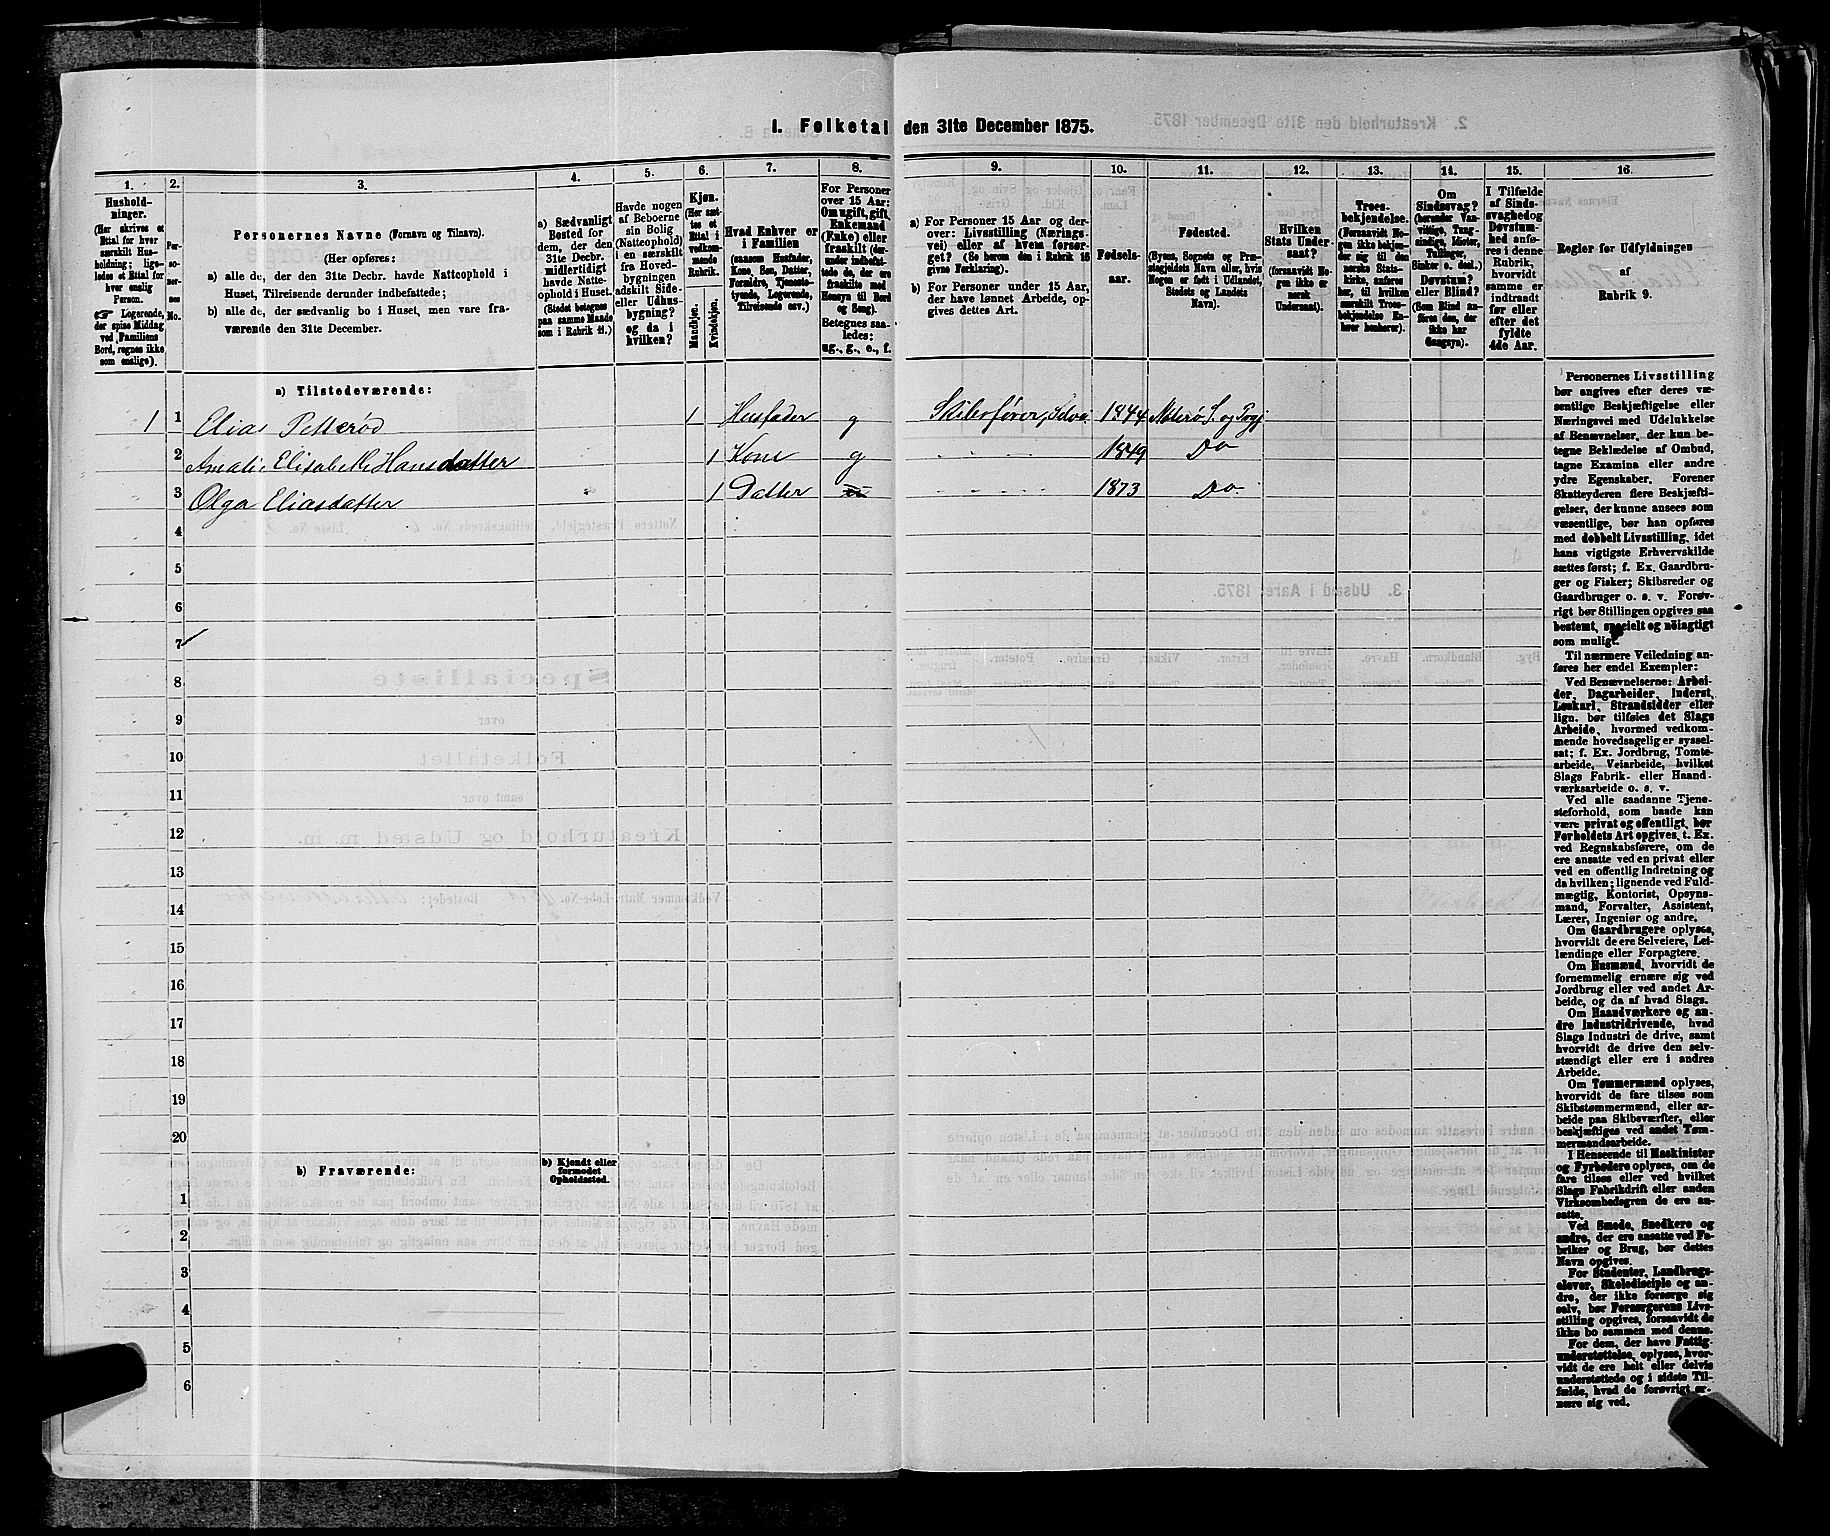 1. Folketal den 31te December 1875.
1. 2. 3. 4. 5. 6. 7. 8. 9. 10. 11. 12. 13. 14. 15. 16.
Hushold-
ninger.
(Her skrives et
Ettal for hver
særskilt Hus-
holdning; lige-
ledes et Ettal for
hver enslig
Person.
☞ Logerende,
der spise Middag
ved Familiens
Bord, regnes ikke
som enslige).
Per-
so-
ner-
nes
No.
Personernes Navne (Fornavn og Tilnavn).
(Her opføres:
a) alle de, der den 31te Decbr. havde Natteophold i
Huset, Tilreisende derunder indbefattede;
b) alle de, der sædvanlig bo i Huset, men vare fra-
værende den 31te December.
a) Sædvanligt
Bosted for
dem, der den
31te Decbr.
midlertidigt
havde Natte-
ophold i Huset.
(Stedet betegnes
paa samme Maade
som i Rubrik 11.)
Havde nogen
af Beboerne
sin Bolig
(Natteophold)
i en særskilt
fra Hoved-
bygningen
adskilt Side-
eller Udhus-
bygning?
og da i
hvilken?
Kjøn.
(Her sæt-
tes et
Ettal i
vedkom-
mende
Rubrik.
Mandkjøn.
Kvindekjøn.
Hvad Enhver er
i Familien
(saasom Husfader,
Kone, Søn, Datter,
Forældre, Tjeneste-
tyende, Logerende,
Tilreisende osv.)
For Personer
over 15 Aar:
Om ugift, gift,
Enkemand
(Enke) eller
fraskilt (der-
under indbefat-
tede de, der ere
fraskilte med
Hensyn til Bord
og Seng).
Betegnes saa-
ledes:
ug., g., e., f.
a) For Personer 15 Aar og der-
over: Livsstilling (Nærings-
vei) eller af hvem forsør-
get? (Se herom den i Rubrik 16
givne Forklaring).
b) For Personer under 15 Aar,
der have lønnet Arbeide, op-
gives dettes Art.
Fødsels-
aar.
Fødested.
(Byens, Sognets og Præ-
stegjeldets Navn eller, hvis
Nogen er født i Udlandet,
Stedets og Landets
Navn).
Hvilken
Stats Under-
saat?
(forsaavidt No-
gen ikke er
norsk
Undersaat).
Troes-
bekjendelse.
(Forsaavidt No-
gen ikke bekjen-
der sig til den
norske Stats-
kirke, anføres
her, til hvilken
særskilt Troes-
bekjendelse En-
hver henhører).
Om
Sindssvag?
(herunder Van-
vittige, Tung-
sindige, Idioter,
Tullinger,
Sinker o. desl.)
Døvstum?
eller Blind?
(Som Blind an-
føres den, der
ikke har
Gangsyn).
I Tilfælde
af Sinds-
svaghed og
Døvstum-
hed anfø-
res i denne
Rubrik,
hvorvidt
samme er
indtraadt
før eller
efter det
fyldte
4de Aar.
Regler for Udfyldningen
af
Rubrik 9.
a) Tilstedeværende:
1 1 Elias Petterød 1 Husfader g Skibsfører, 1844 Nøterø S. og Prgj
2 Amalie Elisabeth Hansdatter 1 Kone g 1849 Do
3 Olga Eliasdatter 1 Datter 1873 Do.
4
5
6
7
8
9
10
11
12
13
14
15
16
17
18
19
20
b) Fraværende:
b) Kjendt eller
formodet
Opholdssted.
1
2
3
4
5
6
Personernes Livsstilling
bør angives efter deres væ-
sentlige Beskjæftigelse eller
Næringsvei med Udelukkelse
af Benævnelser, der kun be-
tegne Beklædelse af Ombud,
tagne Examina eller andre
ydre Egenskaber. Forener
Skatteyderen flere Beskjæfti-
gelser, der kunne ansees som
væsentlige, bør han opføres
med dobbelt Livsstilling, idet
hans vigtigste Erhvervskilde
sættes først; f. Ex. Gaardbru-
ger og Fisker; Skibsreder og
Gaardbruger o. s. v. Forøv-
rigt bør Stillingen opgives saa
bestemt, specielt og nøiagtigt
som muligt.
Til nærmere Veiledning an-
føres her endel Exempler:
Ved Benævnelserne: Arbei-
der, Dagarbeider, Inderst,
Løskarl, Strandsidder eller
lign. bør tilføies det Slags
Arbeide, hvormed vedkom-
mende hovedsagelig er syssel-
sat; f. Ex. Jordbrug, Tomte-
arbeide, Veiarbeide, hvilket
Slags Fabrik- eller Haand-
værksarbeide o. s. v.
Ved alle saadanne Tjene-
steforhold, som baade kan
være privat og offentligt, bør
Forholdets Art opgives, t. Ex.
ved Regnskabsførere, om de
ere ansatte ved en privat eller
ved en offentlig Indretning og
da hvilken; lignende ved Fuld-
mægtig, Kontorist, Opsyns-
mand, Forvalter, Assistent,
Lærer, Ingeniør og andre.
Om Gaardbrugere oplyses,
hvorvidt de ere Selveiere, Lei-
lændinge eller Forpagtere.
Om Husmænd, hvorvidt de
fornemmelig ernære sig ved
Jordbrug eller ved andet Ar-
beide, og da af hvad Slags.
Om Haandværkere og an-
dre Industridrivende, hvad
Slags Industri de drive, samt
hvorvidt de drive den selv-
stændigt eller ere i andres
Arbeide.
Om Tømmermænd oplyses,
hvorvidt de fare tilsøs som
Skibstømmermænd, eller ar-
beide paa Skibsværfter, eller
beskjæftiges ved andet Tøm-
mermandsarbeide.
I Henseende til Maskinister
og Fyrbødere oplyses, om de
fare tilsøs eller ved hvilket
Slags Fabrikdrift eller anden
Virksomhedsgren de ere an-
satte.
Ved Smede, Snedkere og
andre, der ere ansatte ved Fa-
briker og Brug, bør dettes
Navn opgives.
For Studenter, Landbrugs-
elever, Skoledisciple og an-
dre, der ikke forsørge sig
selv, bør Forsørgerens Livs-
stilling opgives, forsaavidt de
ikke bo sammen med denne.
For dem, der have Fattig-
understøttelse, oplyses, hvor-
vidt de ere helt eller delvis
understøttede og i sidste Til-
fælde, hvad de forøvrigt er-
nære sig ved.